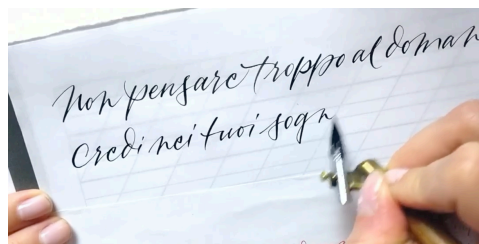 Non pensare troppo al doman
Credi nei tuoi sogn